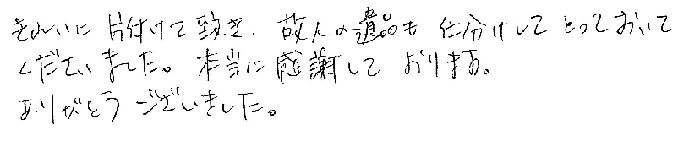 きれいに片付けて致き、故人の遺品も仕分けしてとっておいて
くださいました。本当に感謝しております。
ありがとうございました。